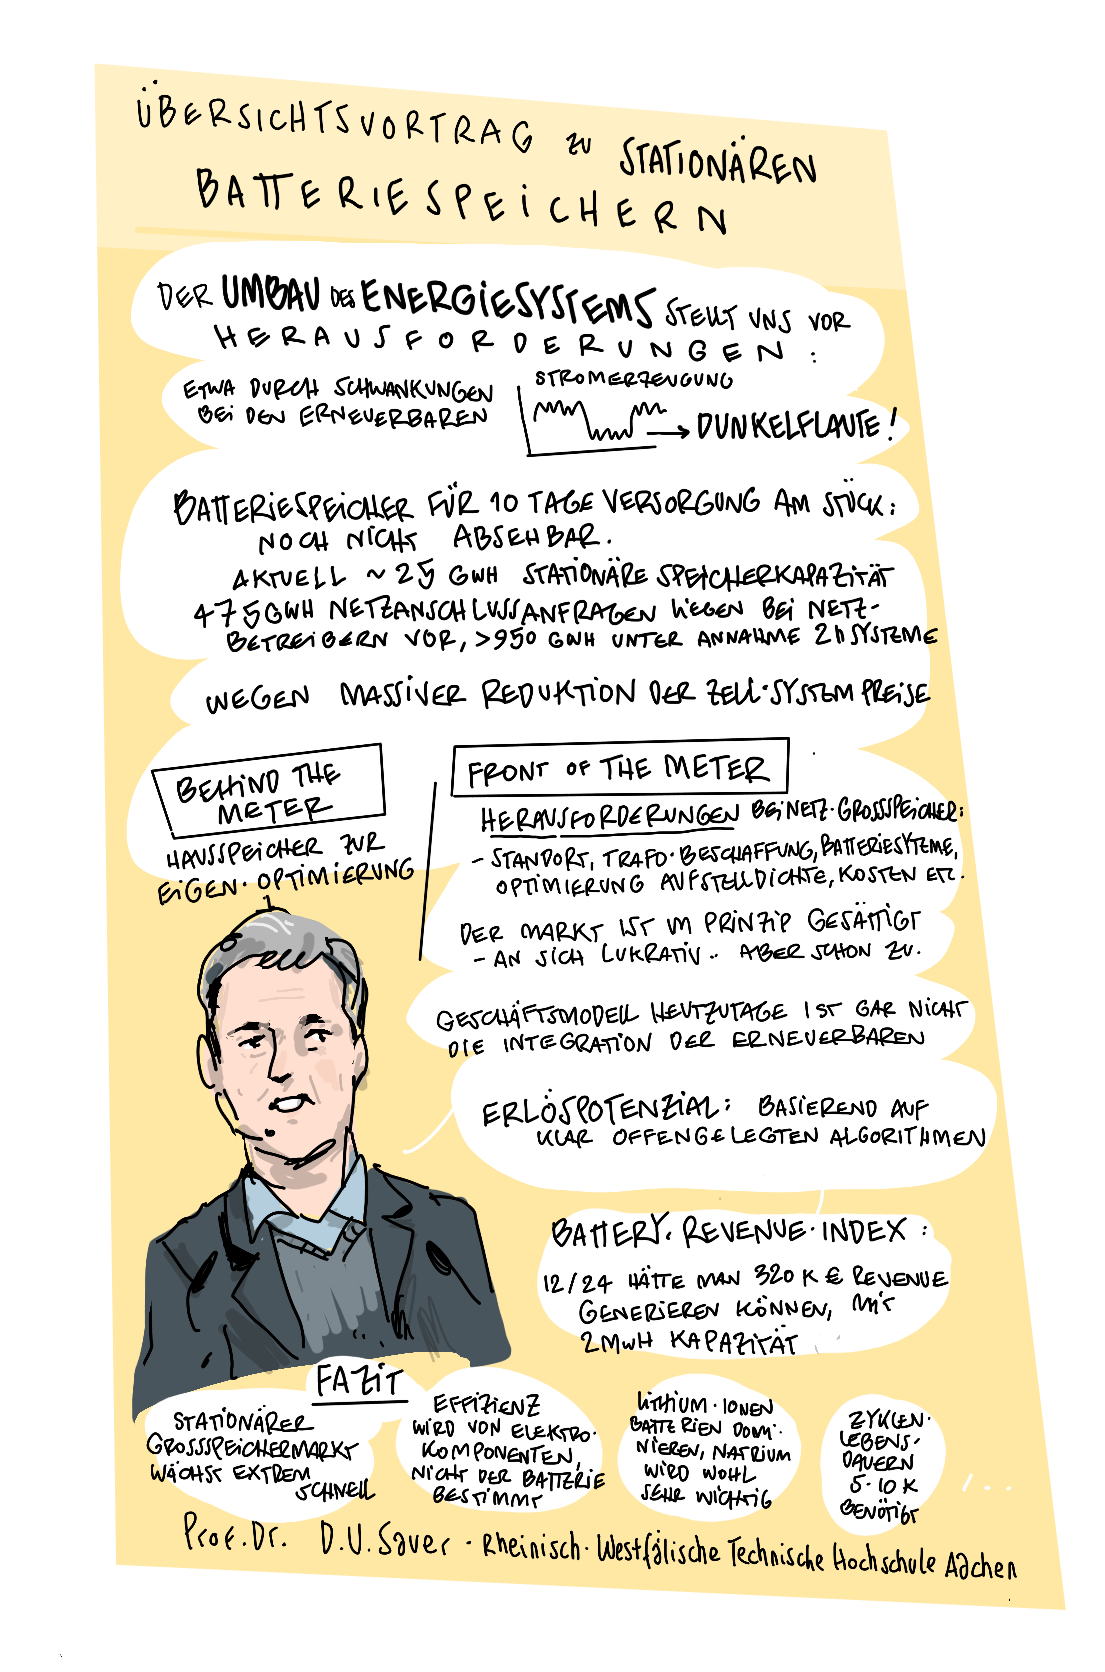 ÜBERSICHTSVORTRAG ZU STATIONÄREN
BATTERIESPEICHERN
DER UMBAU DES ENERGIESYSTEMS STELLT UNS VOR
HERAUSFORDERUNGEN:
ETWA DURCH SCHWANKUNGEN
BEI DEN ERNEUERBAREN
STROMERZEUGUNG
DUNKELFLAUTE!
BATTERIESPEICHER FÜR 10 TAGE VERSORGUNG AM STÜCK:
NOCH NICHT ABSEHBAR.
AKTUELL ~25 GWH STATIONÄRE SPEICHERKAPAZITÄT
475 GWH NETZANSCHLUSSANFRAGEN LIEGEN BEI NETZ-
BETREIBERN VOR, >950 GWH UNTER ANNAHME 2h SYSTEME
WEGEN MASSIVER REDUKTION DER ZELL·SYSTEMPREISE
BEHIND THE
METER
HAUSSPEICHER ZUR
EIGEN·OPTIMIERUNG
FRONT OF THE METER
HERAUSFORDERUNGEN BEI NETZ·GROSSSPEICHER:
- STANDORT, TRAFO·BESCHAFFUNG, BATTERIESYTEME,
OPTIMIERUNG AUFSTELLDICHTE, KOSTEN ETC.
DER MARKT IST IM PRINZIP GESÄTTIGT
- AN SICH LUKRATIV.. ABER SCHON ZU.
GESCHÄFTSMODELL HEUTZUTAGE IST GAR NICHT
DIE INTEGRATION DER ERNEUERBAREN
ERLÖSPOTENZIAL: BASIEREND AUF
KLAR OFFENGELEGTEN ALGORITHMEN
BATTERY·REVENUE·INDEX:
12/24 HÄTTE MAN 320 K € REVENUE
GENERIEREN KÖNNEN, MIT
2MWH KAPAZITÄT
FAZIT
STATIONÄRER
GROSSSPEICHERMARKT
WÄCHST EXTREM
SCHNELL
EFFIZIENZ
WIRD VON ELEKTRO·
KOMPONENTEN,
NICHT DER BATTERIE
BESTIMMT
LITHIUM·IONEN
BATTERIEN DOMI·
NIEREN, NATRIUM
WIRD WOHL
SEHR WICHTIG
ZYKLEN·
LEBENS·
DAUERN
5-10 K
BENÖTIGT
...
Prof. Dr. D.U. Sauer · Rheinisch·Westfälische Technische Hochschule Aachen